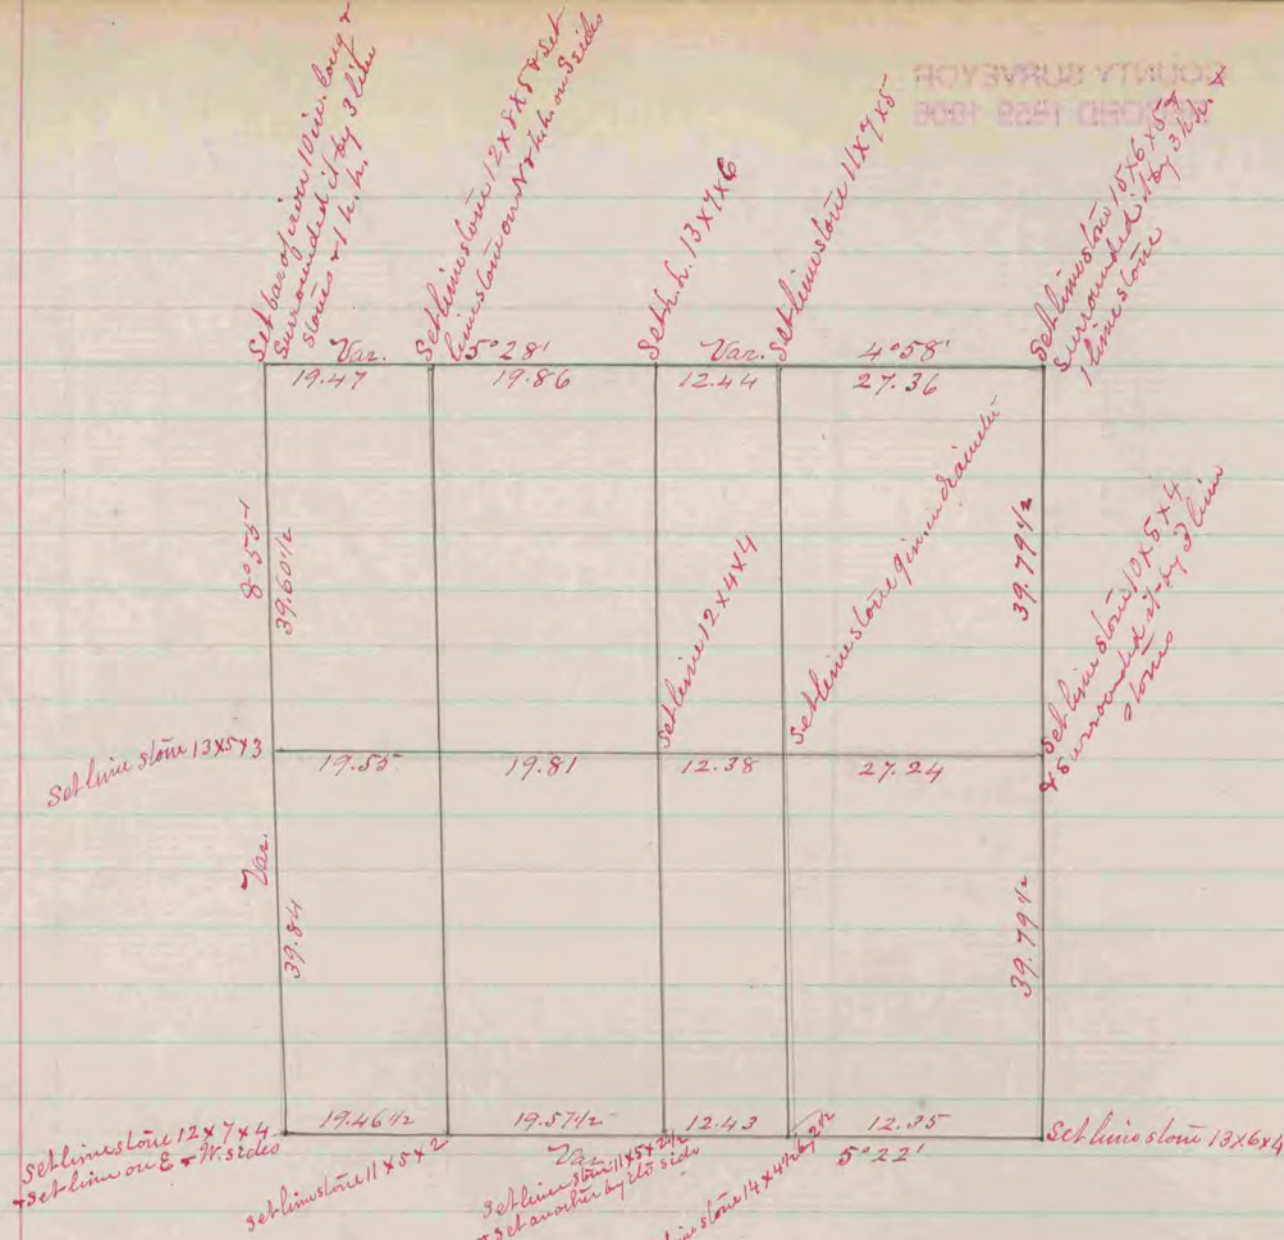 COUNTY SURVEYOR
RECORD 1859 1906
Set bar of iron 10 in. long &
surrounded it by 3 lime
stones & 1 h. h.
Set lime stone 12 x 8 x 5 & set
lime stone on N & h.h. on S sides
Set h. h. 13 x 7 x 6
Set lime stone 11 x 7 x 5
Set lime stone 15 x 6 x 5 &
surrounded it by 3 h. h. &
1 lime stone
Var. 5° 28' Var. 4° 58'
19.47 19.86 12.44 27.36
8° 55'
39.60 1/2
39.79 1/2
Set lime 12 x 4 x 4
Set lime stone 9 in. in diameter
Set lime stone 10 x 5 x 4
& surrounded it by 3 lime
stones
Set lime stone 13 x 5 x 3
19.55 19.81 12.38 27.24
Var.
39.84
39.79 1/2
19.46 1/2 19.57 1/2 12.43 12.35
Var. 5° 22'
Set lime stone 12 x 7 x 4
& set lime on E & W. sides
Set lime stone 11 x 5 x 2
Set lime stone 11 x 5 x 2 1/2
& set another by its side
lime stone 14 x 4 1/2 by 2 1/2
Set lime stone 13 x 6 x 4